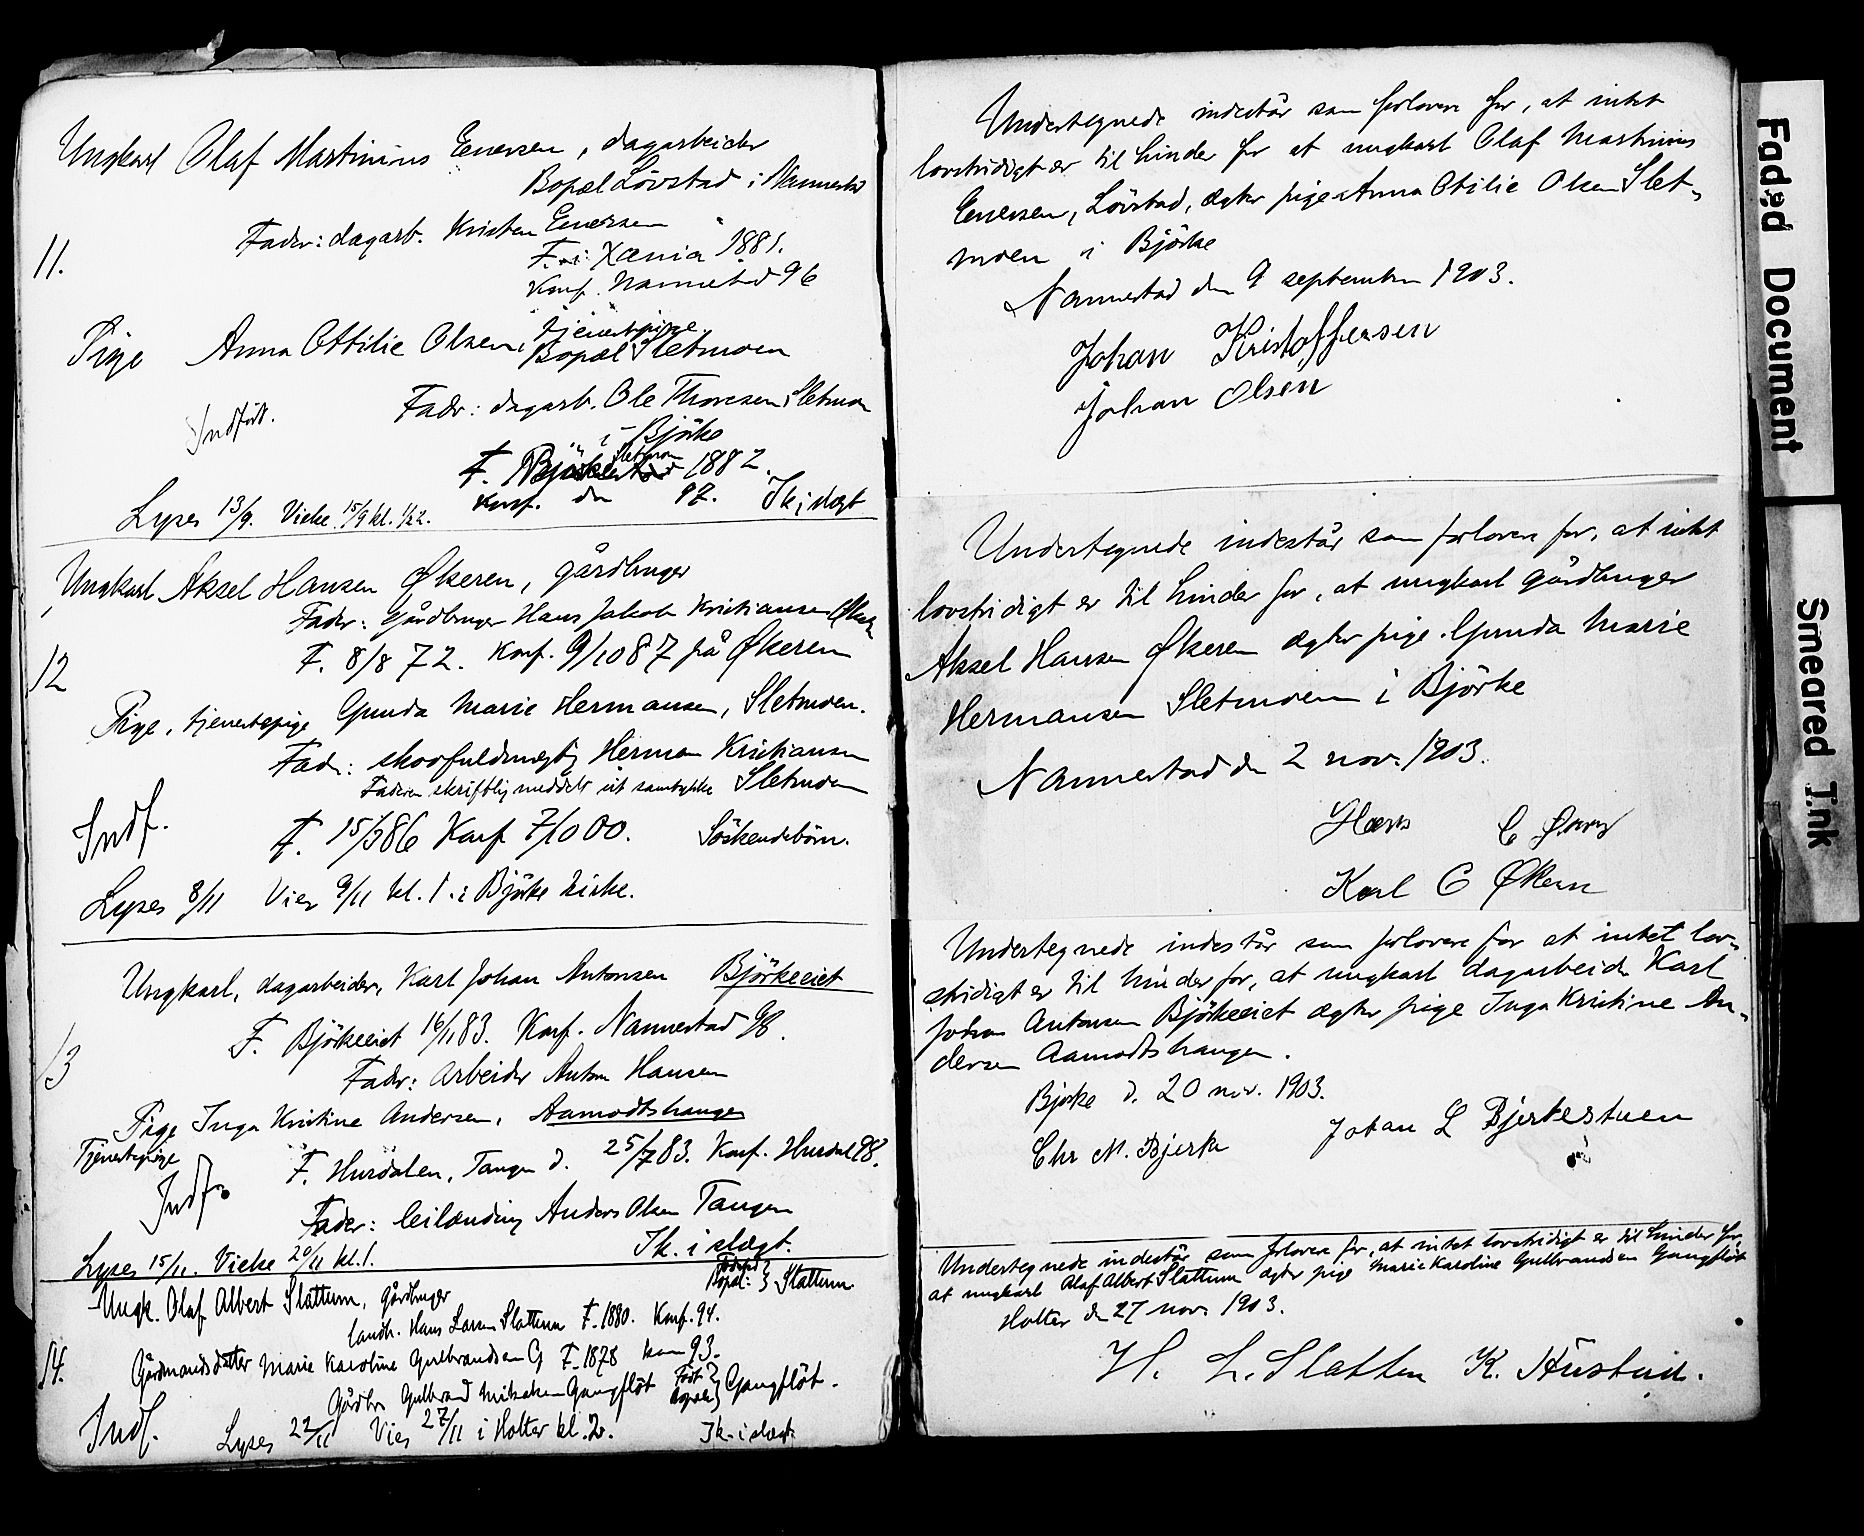 Ungkarl Olaf Martinius Enersen, dagarbeider
Bopæl Lövstad i Nannestad
Fader: dagarb. Kristen Enersen
11.
F. i Xania 1881.
Konf. Nannestad 96
Pige Anna Ottilie Olsen, tjenestepige
Bopæl Sletmoen
Fader: dagarb. Ole Thoresen, Sletmoen
Indfört.
i Björke
Sletmoen
F. 1882.
Konf. do 97. Ik. i slægt
Lyses 13/9. Vielse 15/9 kl. 1/2 2.
Ungkarl Aksel Hansen Økeren, gårdbruger
Fader: Gårdbruger Hans Jakob Kristiansen Økeren
12
F. 8/8 72. Konf. 9/10 87 på Økeren
Pige, tjenestepige Gunda Marie Hermansen, Sletmoen.
Fader: skovfuldmægtig Herman Kristiansen
Faderen skriftlig meddelt sit samtykke Sletmoen
Indf.
F. 15/7 86 Konf 7/10 00. Söskendebörn.
Lyses 8/11 Vies 9/11 kl. 1 i Björke kirke.
Ungkarl, dagarbeider, Karl Johan Antonsen Björkeeiet
F. Björkeeiet 16/1 83. Konf. Nannestad 98.
13
Fader: Arbeider Anton Hansen
Pige Inga Kristine Andersen, Aamodtshaugen
Tjenestepige
F. Hurdalen, Tangen d. 25/7 83. Konf. Hurdal 98.
Indf.
Fader: leilænding Anders Olsen Tangen
Ik. i slægt.
Lyses 15/11. Vielse 20/11 kl. 1.
Födested
Ungk. Olaf Albert Slattum, gårdbruger Bopæl: } Slattum
landh. Hans Larsen Slattum F. 1880. Konf. 94.
14.
Gårdmandsdatter Marie Karoline Gulbrandsen G F. 1878 kon 93.
Gårdbr Gulbrand Mikalsen Gangflöt Födt Bopæl } Gangflöt.
Indf.
Lyses 22/11 Vies 27/11 i Holter kl. 2. Ik. i slægt.
Undertegnede indestår som forlovere for, at intet
lovstridigt er til hinder for at ungkarl Olaf Martinius
Enersen, Lövstad, ægter pige Anna Otilie Olsen Slet-
moen i Björke
Nannestad den 9 september 1903.
Johan Kristoffersen
Johan Olsen
Undertegnede indestår som forlovere for, at intet
lovstridigt er til hinder for, at ungkarl gårdbruger
Aksel Hansen Økeren ægter pige Gunda Marie
Hermansen Sletmoen i Björke
Nannestad den 2 nov. 1903.
Hans C
Karl C Økern
Undertegnede indestår som forlovere for at intet lov-
stridigt er til hinder for, at ungkarl dagarbeider Karl
Johan Antonsen Björkeeiet ægter pige Inga Kristine An-
dersen Aamodtshaugen.
Björke d. 20 nov. 1903.
Chr M. Bjerke Johan L Bjerkestuen
Undertegnede indestår som forlovere for, at intet lovstridigt er til hinder for,
at ungkarl Olaf Albert Slattum ægter pige Marie Karoline Gulbrandsen Gangflöt
Holter den 27 nov. 1903.
H. L. Slattum K. Husstad.
Faded Document
Smeared Ink